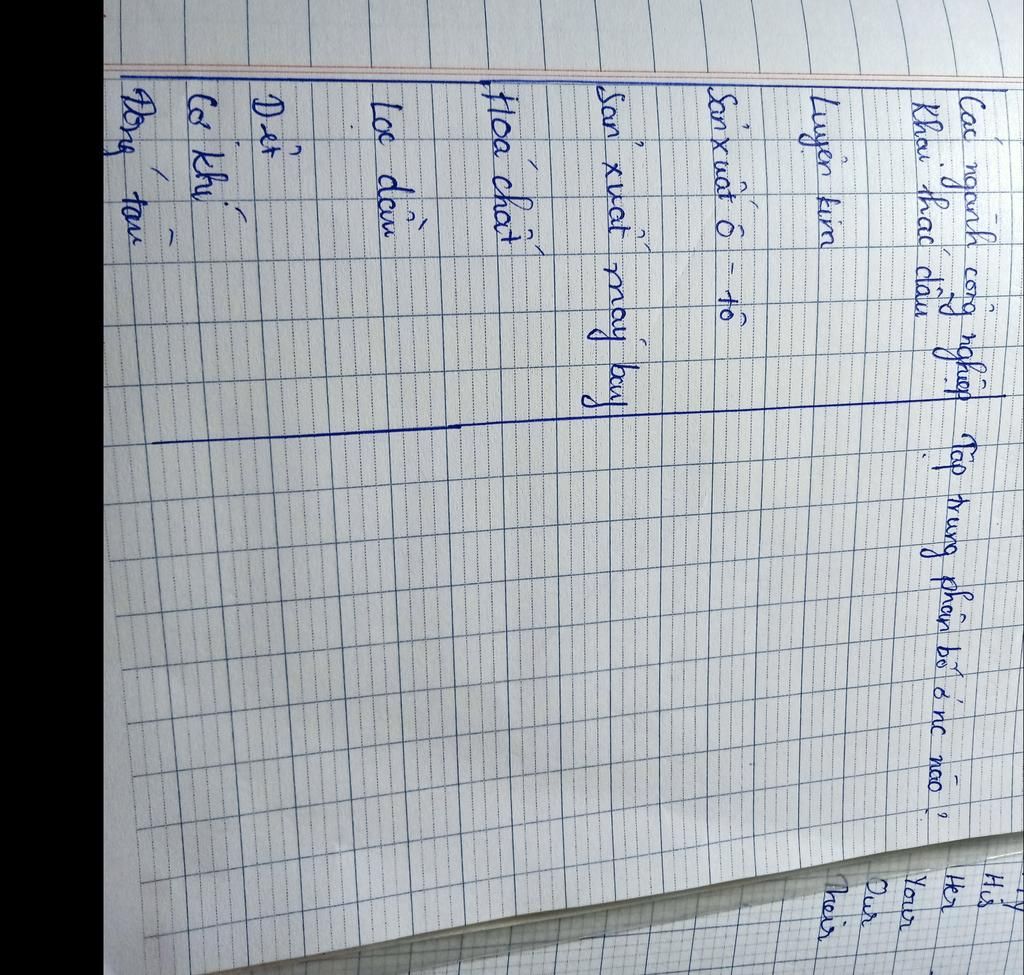 Các ngành công nghiệp Tập trung phân bố ở nc nào?
Khai thác dầu
Luyện kim
Sản xuất ô - tô
Sản xuất máy bay
Hoá chất
Lọc dầu
Dệt
Cơ khí
Đóng tàu
His
Her
Your
Our
Their